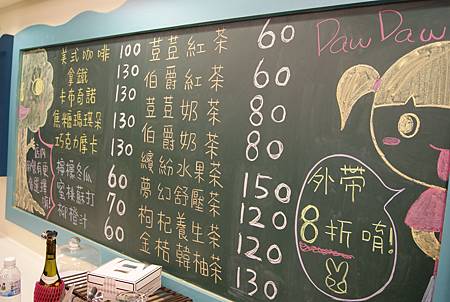 美式咖啡 100
拿鐵 130
卡布奇諾 130
焦糖瑪琪朵 130
巧克力摩卡 130
檸檬冬瓜 60
蜜桃蘇打 70
柳橙汁 60
荳荳紅茶 60
伯爵紅茶 60
荳荳奶茶 80
伯爵奶茶 80
繽紛水果茶 150
夢幻舒壓茶 120
枸杞養生茶 120
金桔韓柚茶 130
Daw Daw
外帶
8折唷!